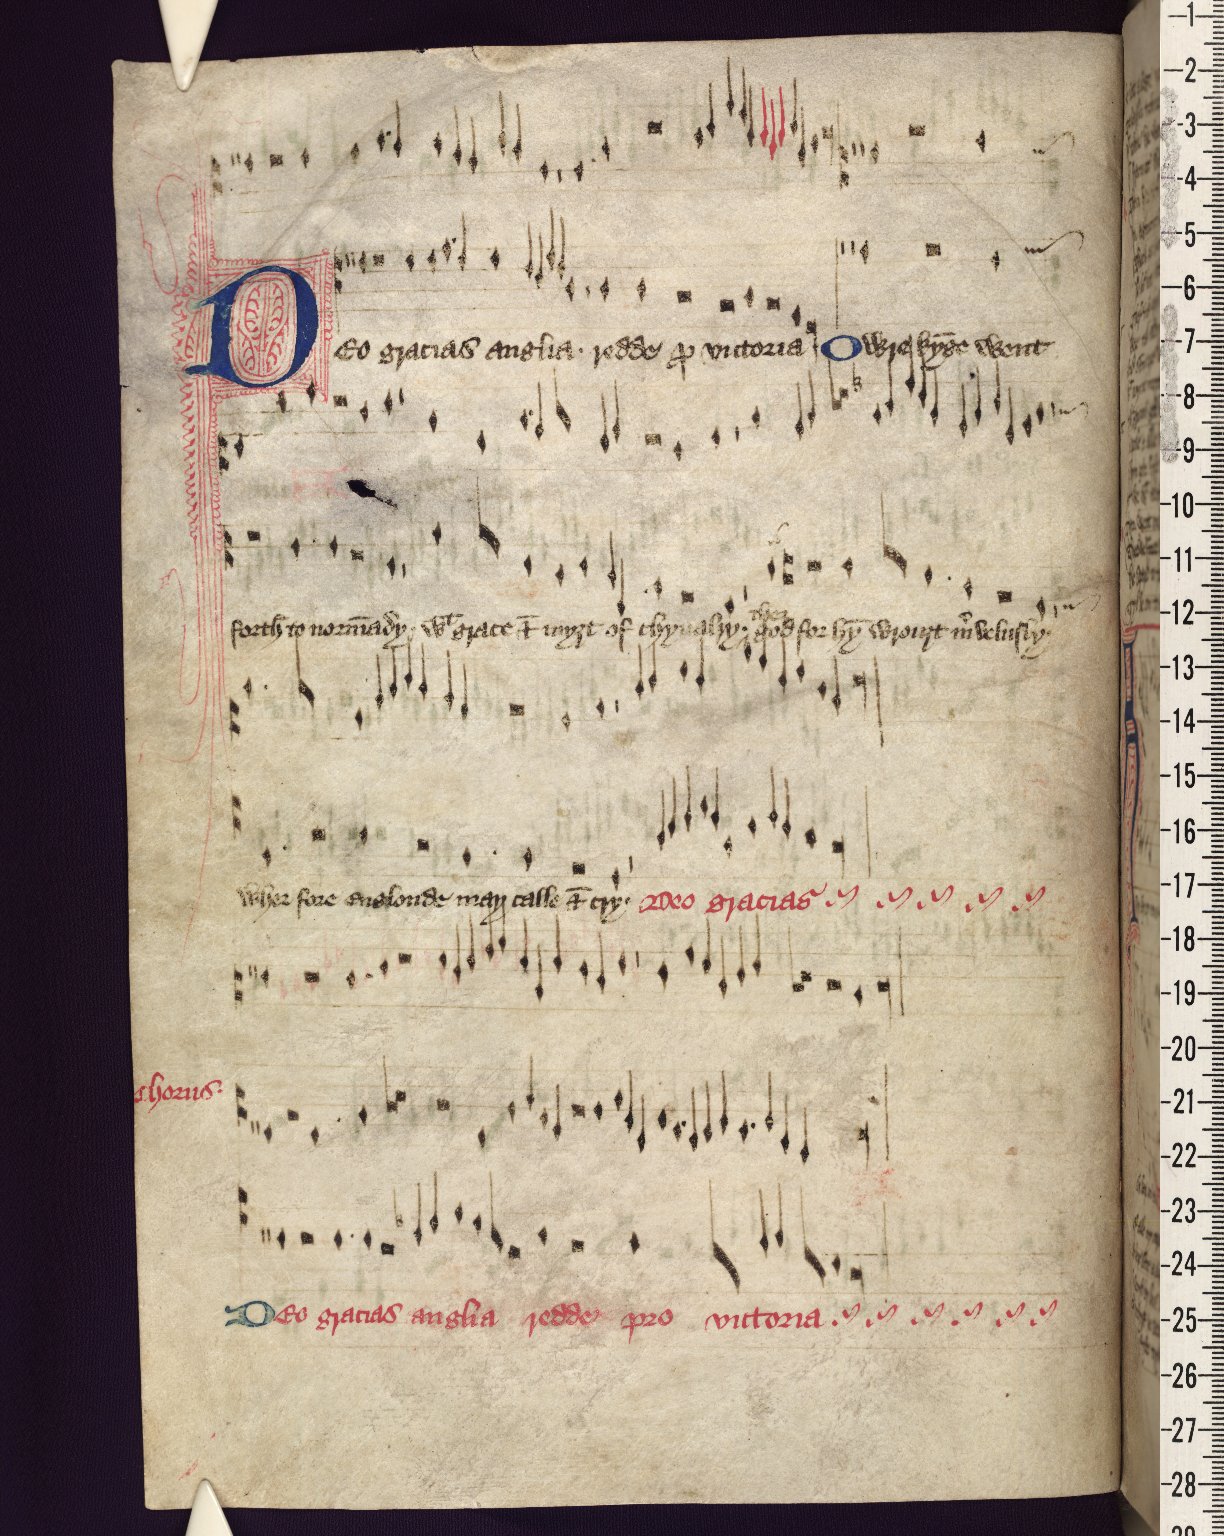 Deo gracias anglia · redde ꝓ victoria Owre kȳge went
forth to normādy · wt grace & myȝt of chyualry · ther god for hȳ wrouȝt mʼvelusly ·
Wher fore englonde may calle & cry · Deo gracias
chorus ·
Deo gracias anglia redde pro victoria
1
2
3
4
5
6
7
8
9
10
11
12
13
14
15
16
17
18
19
20
21
22
23
24
25
26
27
28